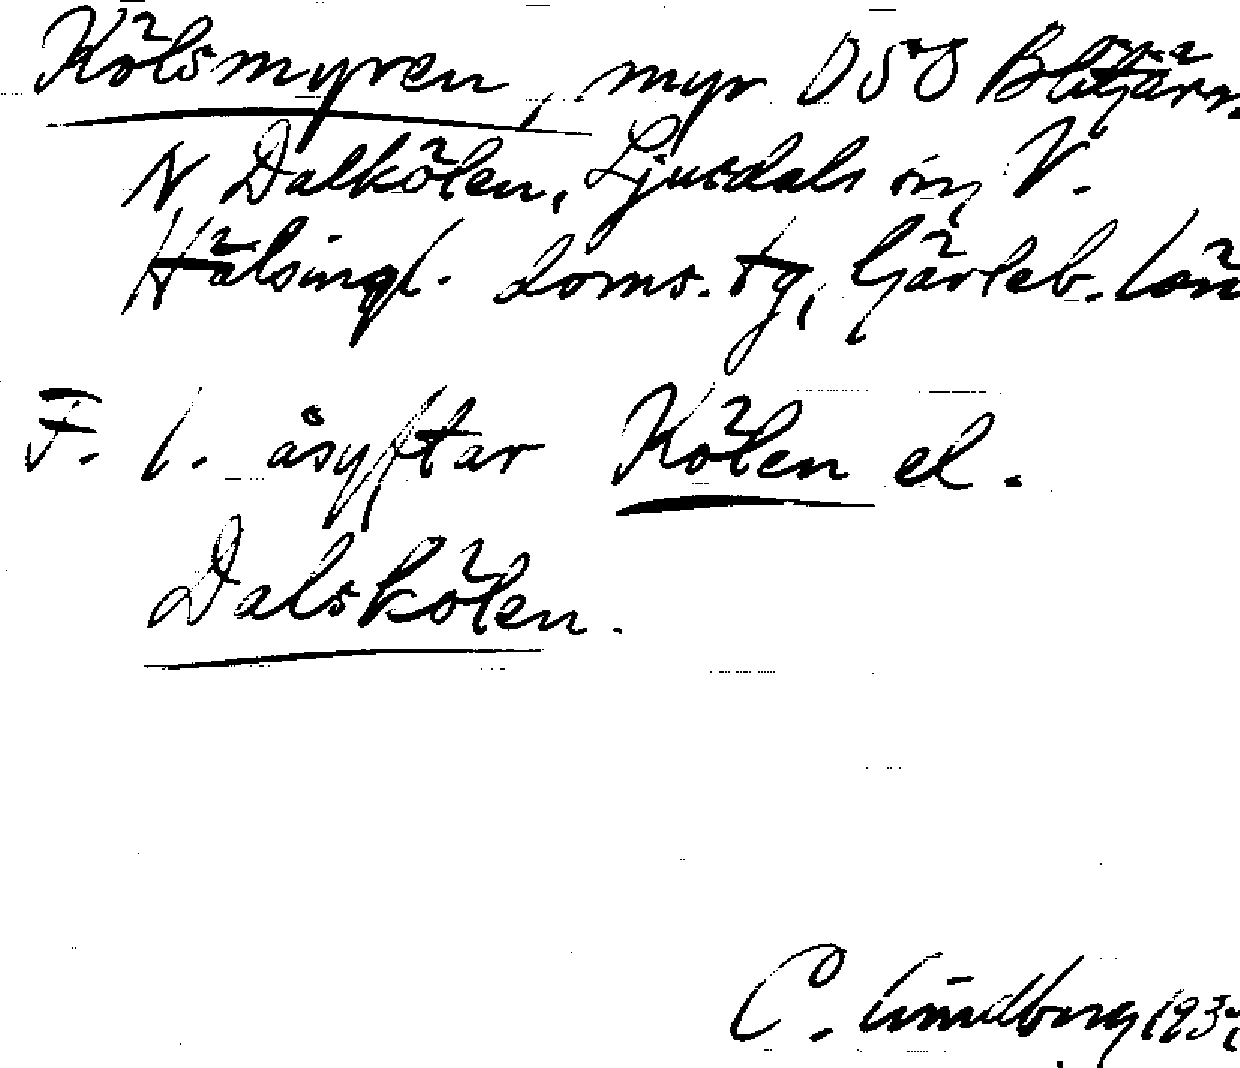 Kölsmyren, myr OSO Blötjärn
N Dalkölen, Ljusdals sn, V.
Hälsingl. doms. tg, Gävleb. län
F. l. åsyftar Kölen el.
Dalskölen.
C. Lindberg